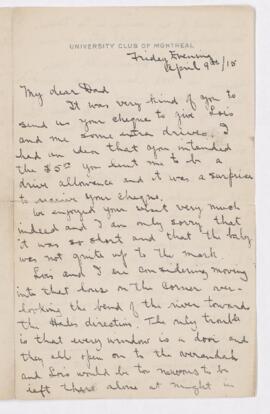 UNIVERSITY CLUB OF MONTREAL
Friday Evening
April 9th/15
My dear Dad
It was very kind of you to
send us your cheque to give Lois
and me some extra drives. I
had an idea that you intended
the $5.00 you sent me to be a
drive allowance and it was a surprise
to receive your cheque.
We enjoyed your visit very much
indeed and I am only sorry that
it was so short and that the baby
was not quite up to the mark.
Lois and I are considering moving
into that house on the corner over-
looking the bend of the river toward
the Hales direction. The only trouble
is that every window is a door and
they all open on to the verandah
and Lois would be too nervous to be
left there alone at night in